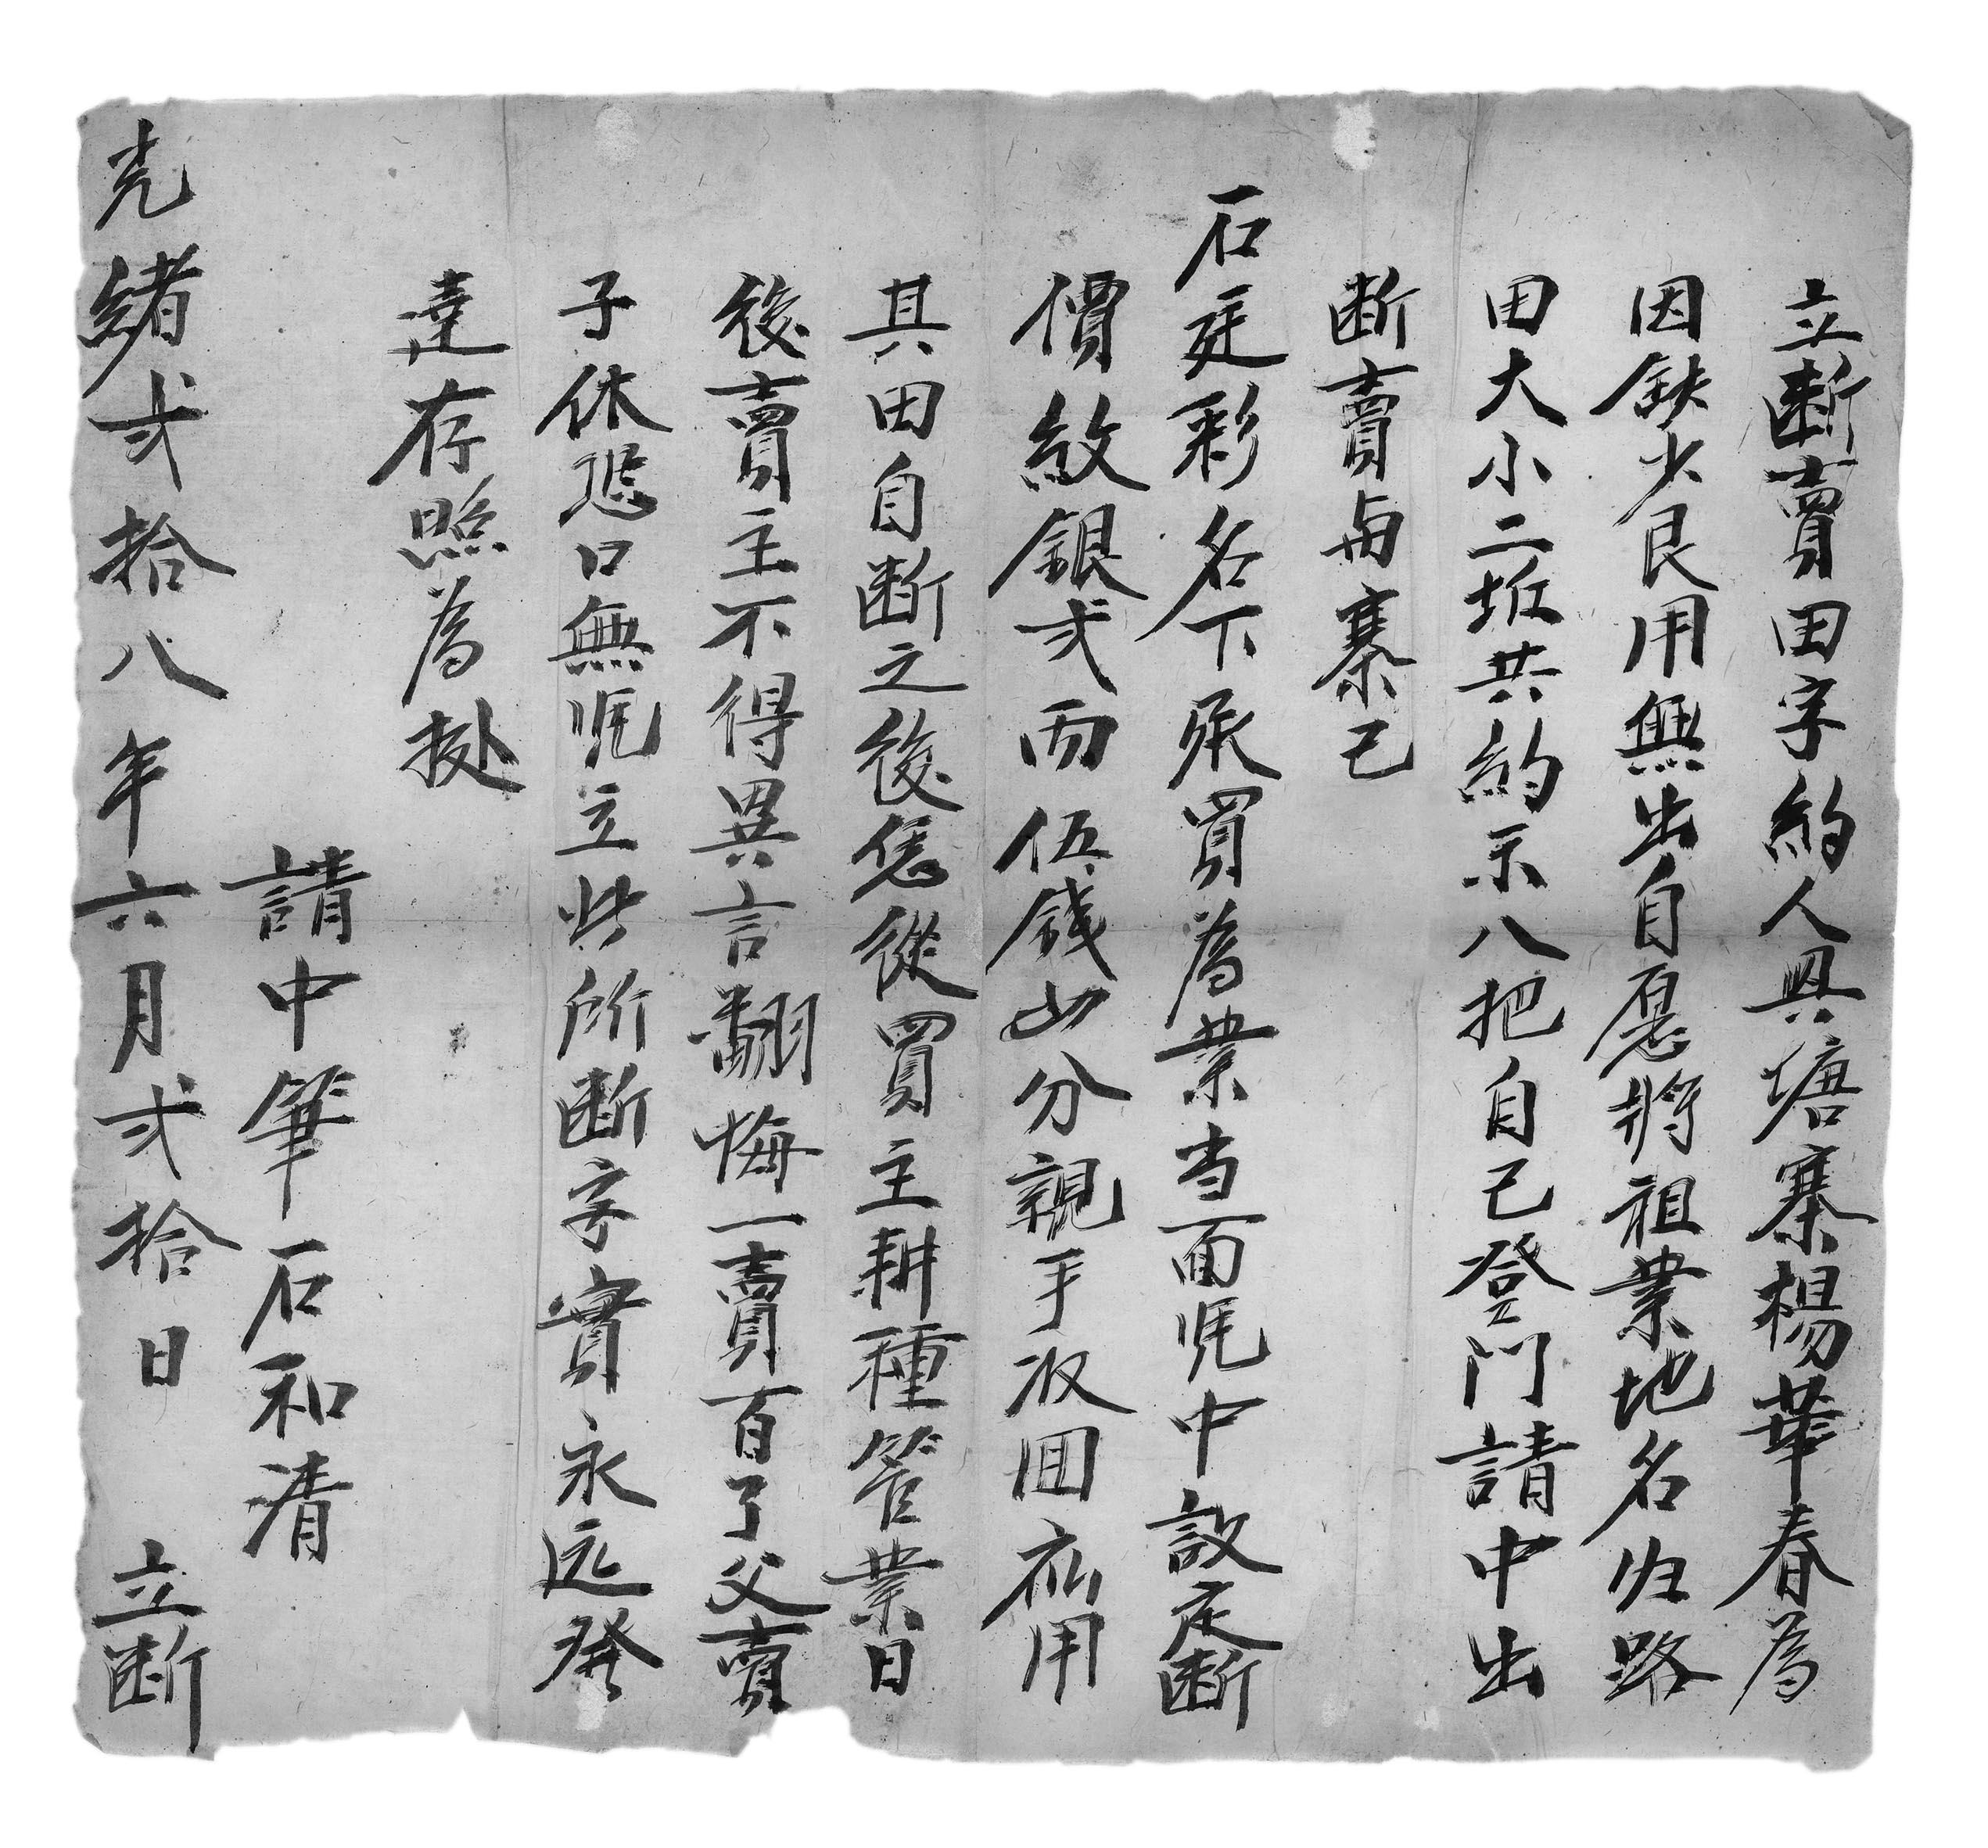 立断賣田字約人興塘寨楊華春為
因缺少艮用無出自愿將祖業地名归路
田大小二坵共約禾八把自己登門請中出
断賣与寨己
石廷彩名下承買為業当面凴中議定断
價紋銀弍両伍錢四分親手收回应用
其田自断之後恁從買主耕種管業日
後賣主不得異言翻悔一賣百了父賣
子休恐口無凴立此所断字實永远発
達存照為据
請中筆石和清
光緒弍拾八年六月弍拾日 立断